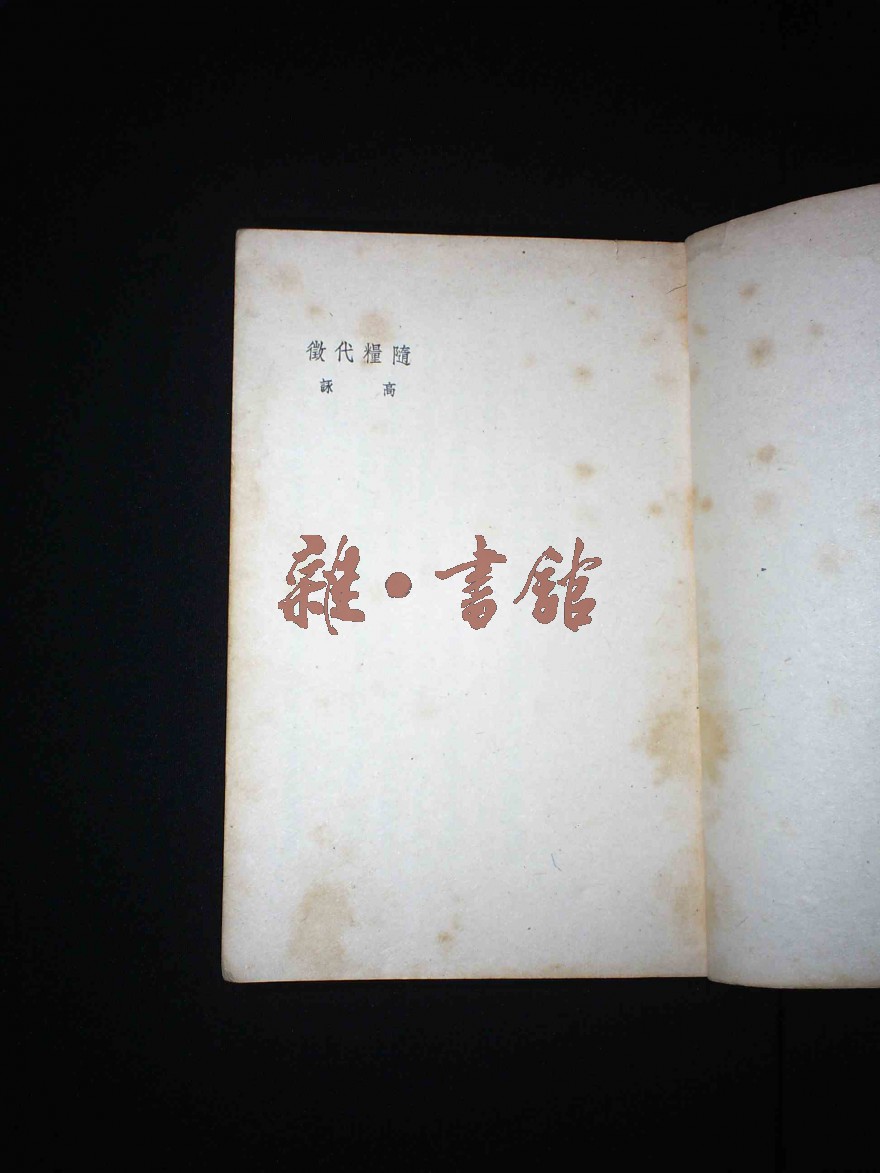 隨糧代徵
高詠
雜·書館